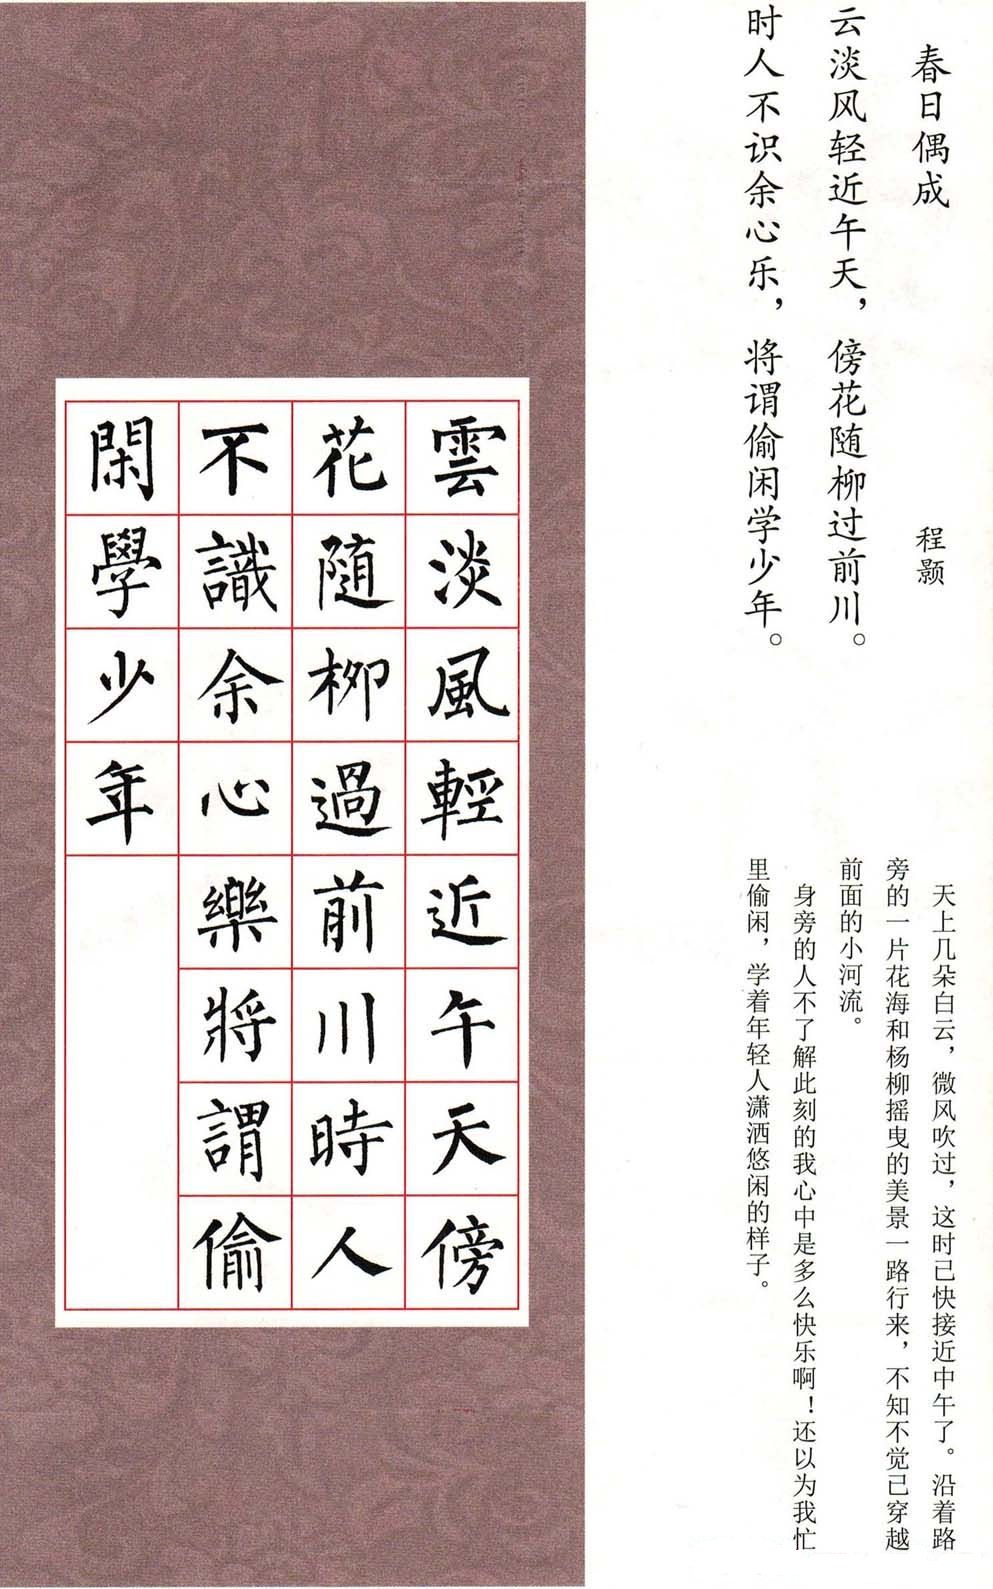 春日偶成
程颢
云淡风轻近午天，傍花随柳过前川。
时人不识余心乐，将谓偷闲学少年。
天上几朵白云，微风吹过，这时已快接近中午了。沿着路
旁的一片花海和杨柳摇曳的美景一路行来，不知不觉已穿越
前面的小河流。
身旁的人不了解此刻的我心中是多么快乐啊！还以为我忙
里偷闲，学着年轻人潇洒悠闲的样子。
雲淡風輕近午天傍
花随柳過前川時人
不識余心樂將謂偷
閑學少年